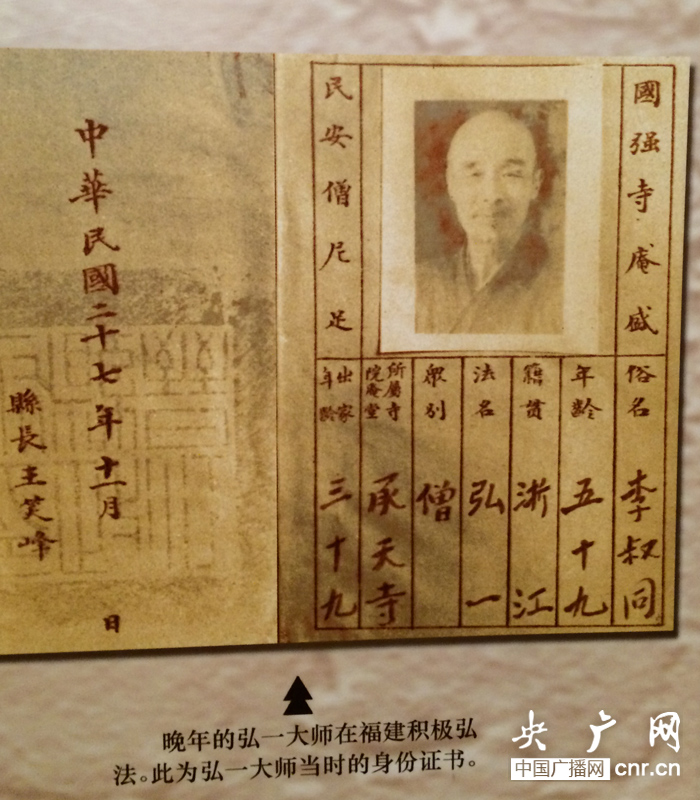 國强寺庵盛
民安僧尼足
俗名 李叔同
年齡 五十九
籍貫 浙江
法名 弘一
眾别 僧
所屬寺院庵堂 承天寺
出家年齡 三十九
中華民國二十七年十一月 日
縣長王笑峰
晚年的弘一大师在福建积极弘
法。此为弘一大师当时的身份证书。
央广网
中国广播网 cnr.cn